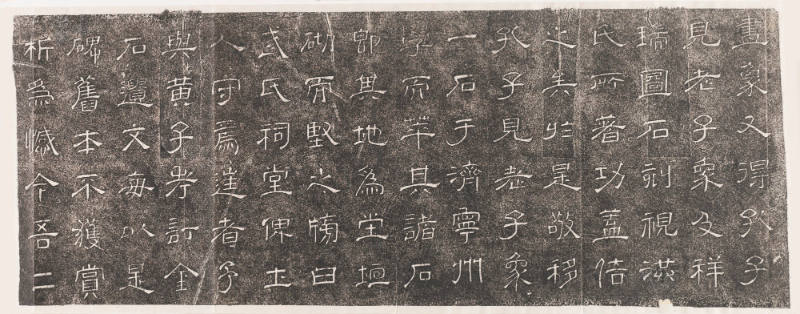 畫象又得孔子
見老子象及祥
瑞圖石刻視洪
氏所著功蓋倍
之矣於是敬移
孔子見老子象
一石于濟寧州
學而萃其諸石
即其地為堂垣
砌而堅之牓曰
武氏祠堂俾土
人守焉往者予
與黃子考訂金
石遺文每以是
碑舊本不獲賞
析為憾今吾二